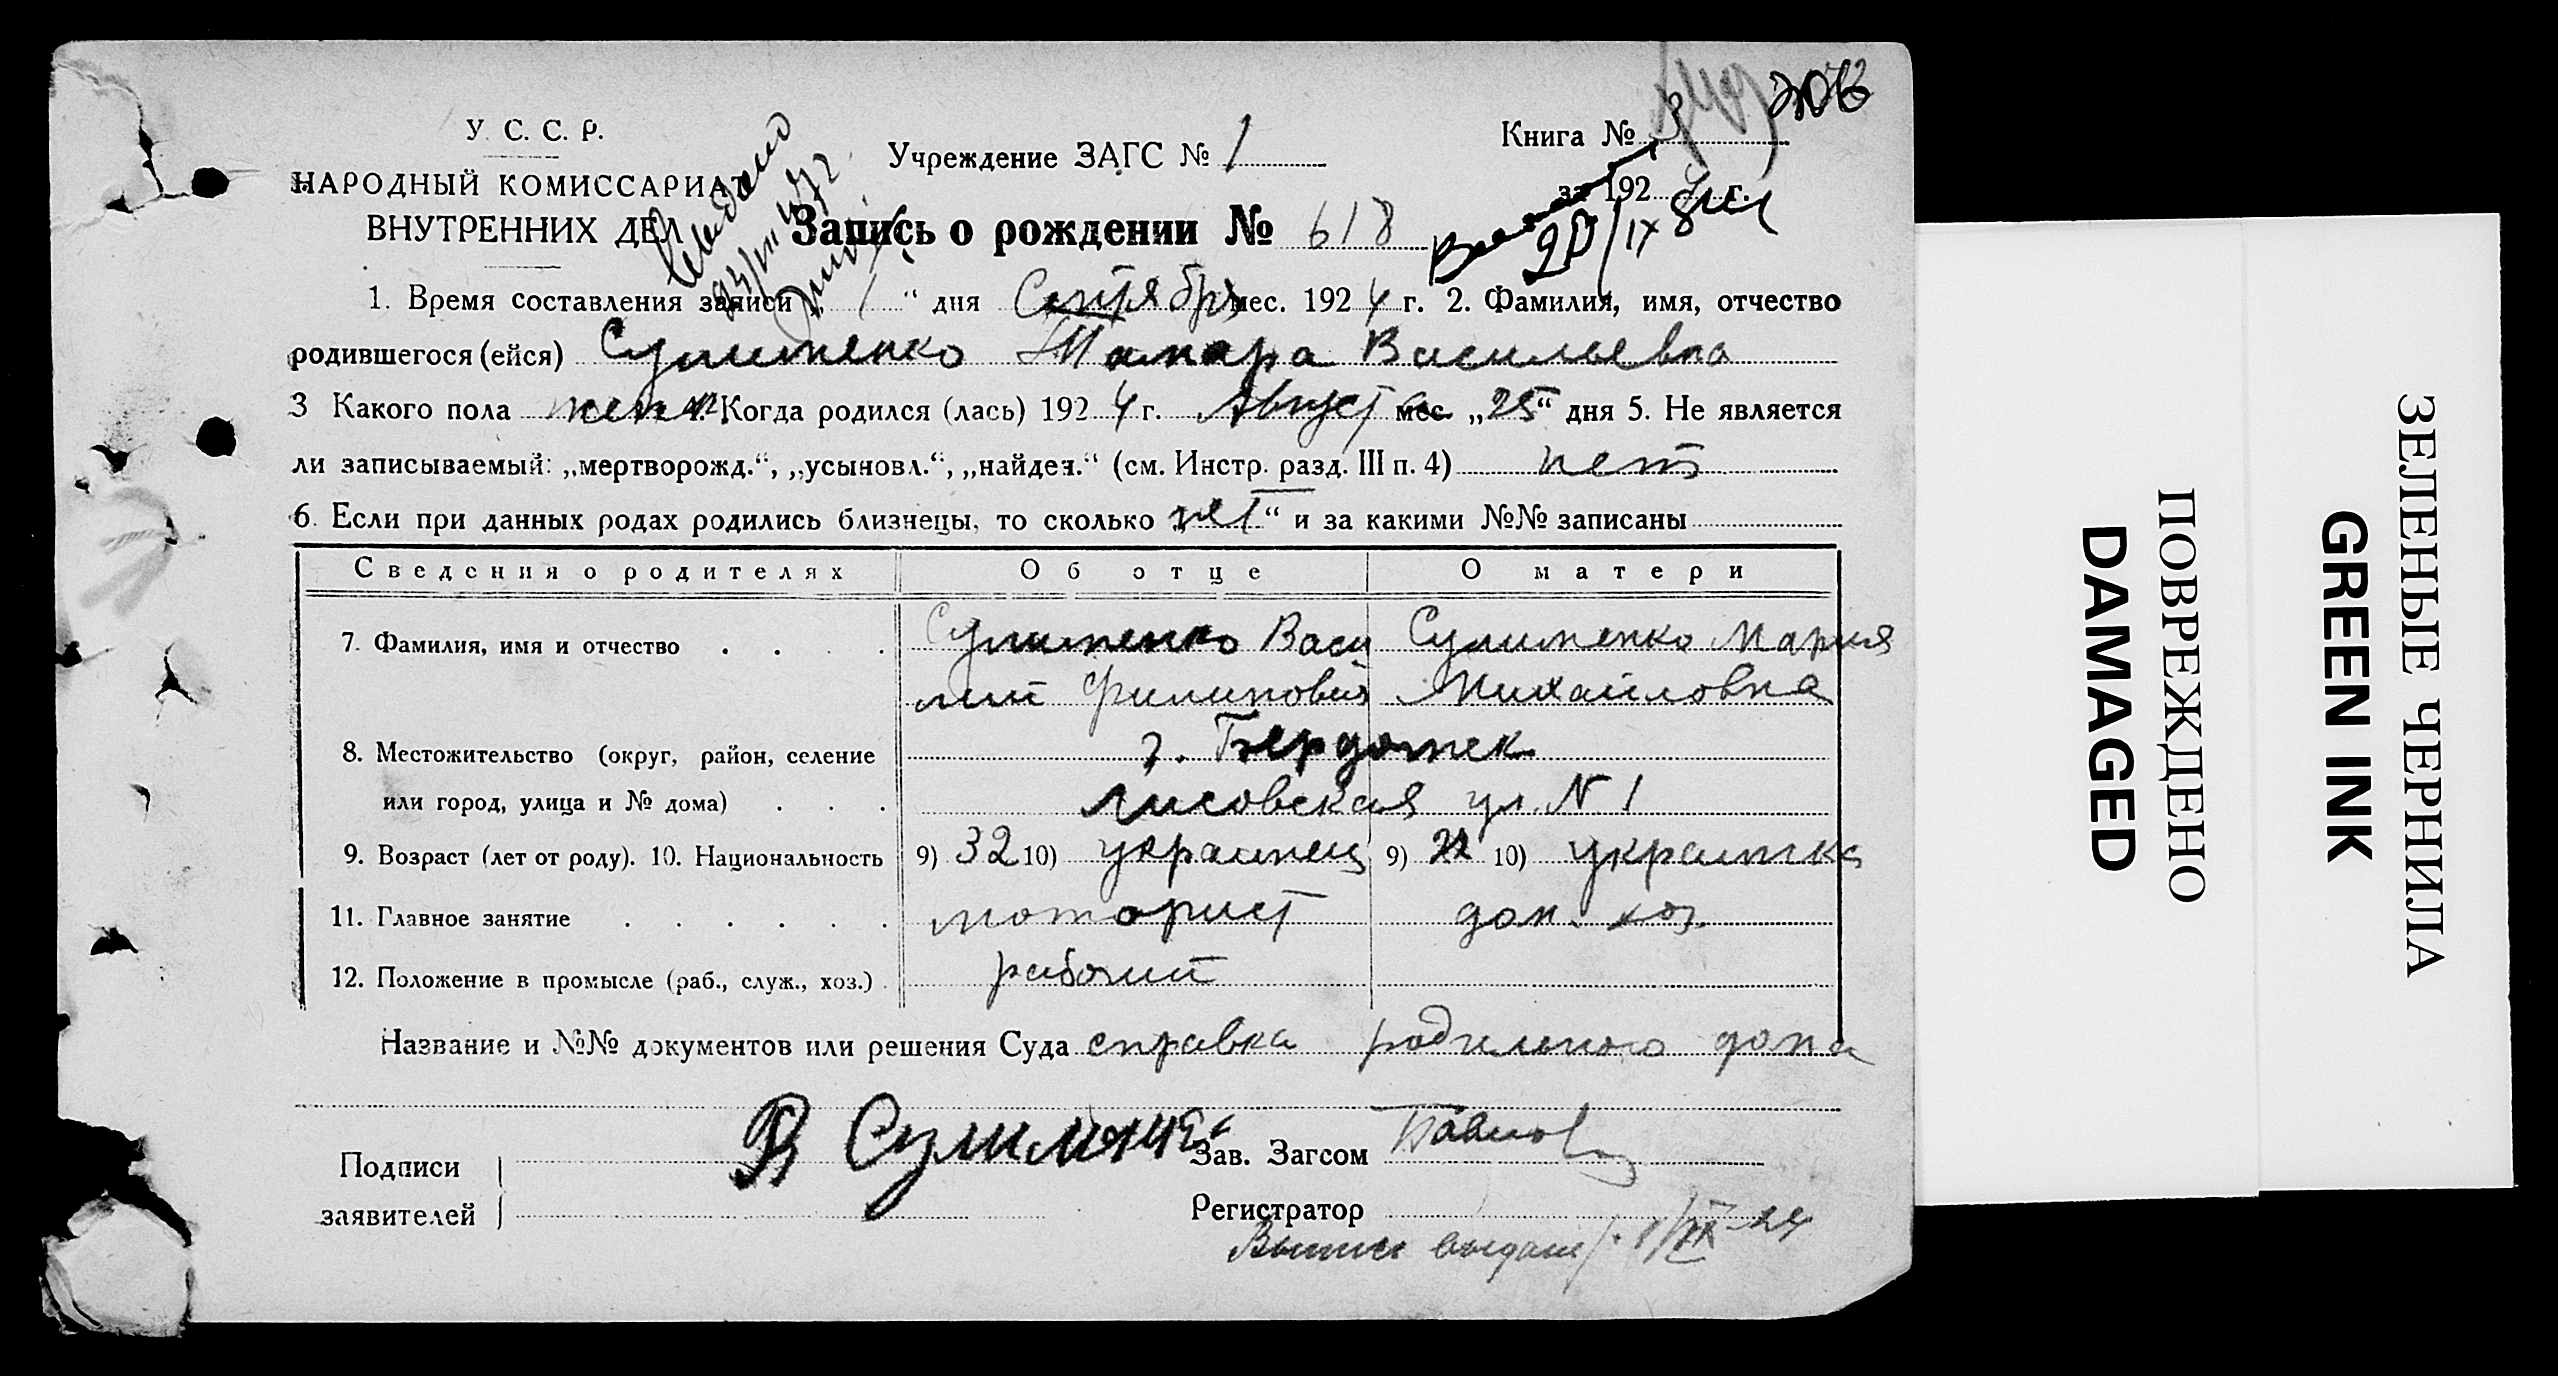 У. С. С. Р.
НАРОДНЫЙ КОМИССАРИАТ
ВНУТРЕННИХ ДЕЛ
Учреждение ЗАГС № 1
Книга №
за 1924 г.
Запись о рождении № 618
20/IX
1. Время составления записи „ 1 “ дня Сентября мес. 1924 г. 2. Фамилия, имя, отчество
родившегося (ейся) Сулименко Тамара Васильевна
3 Какого пола жен 4. Когда родился (лась) 1924 г. Августа мес. „25“ дня 5. Не является
ли записываемый: „мертворожд.“, „усыновл.“, „найден.“ (см. Инстр. разд. III п. 4) нет
6. Если при данных родах родились близнецы, то сколько „нет“ и за какими №№ записаны
Сведения о родителях Об отце О матери
7. Фамилия, имя и отчество . . . . Сулименко Васи Сулименко Мария
лий Филипович Михайловна
8. Местожительство (округ, район, селение г. Бердянск
или город, улица и № дома) . . . Лисовская ул. N 1
9. Возраст (лет от роду). 10. Национальность 9) 32 10) украинец 9) 10) украинка
11. Главное занятие . . . . . . моторист дом. хоз.
12. Положение в промысле (раб., служ., хоз.) . рабочий
Название и №№ документов или решения Суда справка родильного дома
Подписи
заявителей
В Сулименко
Зав. Загсом
Регистратор
Выпись выдана 1/IX-24
ПОВРЕЖДЕНО
DAMAGED
ЗЕЛЕНЫЕ ЧЕРНИЛА
GREEN INK